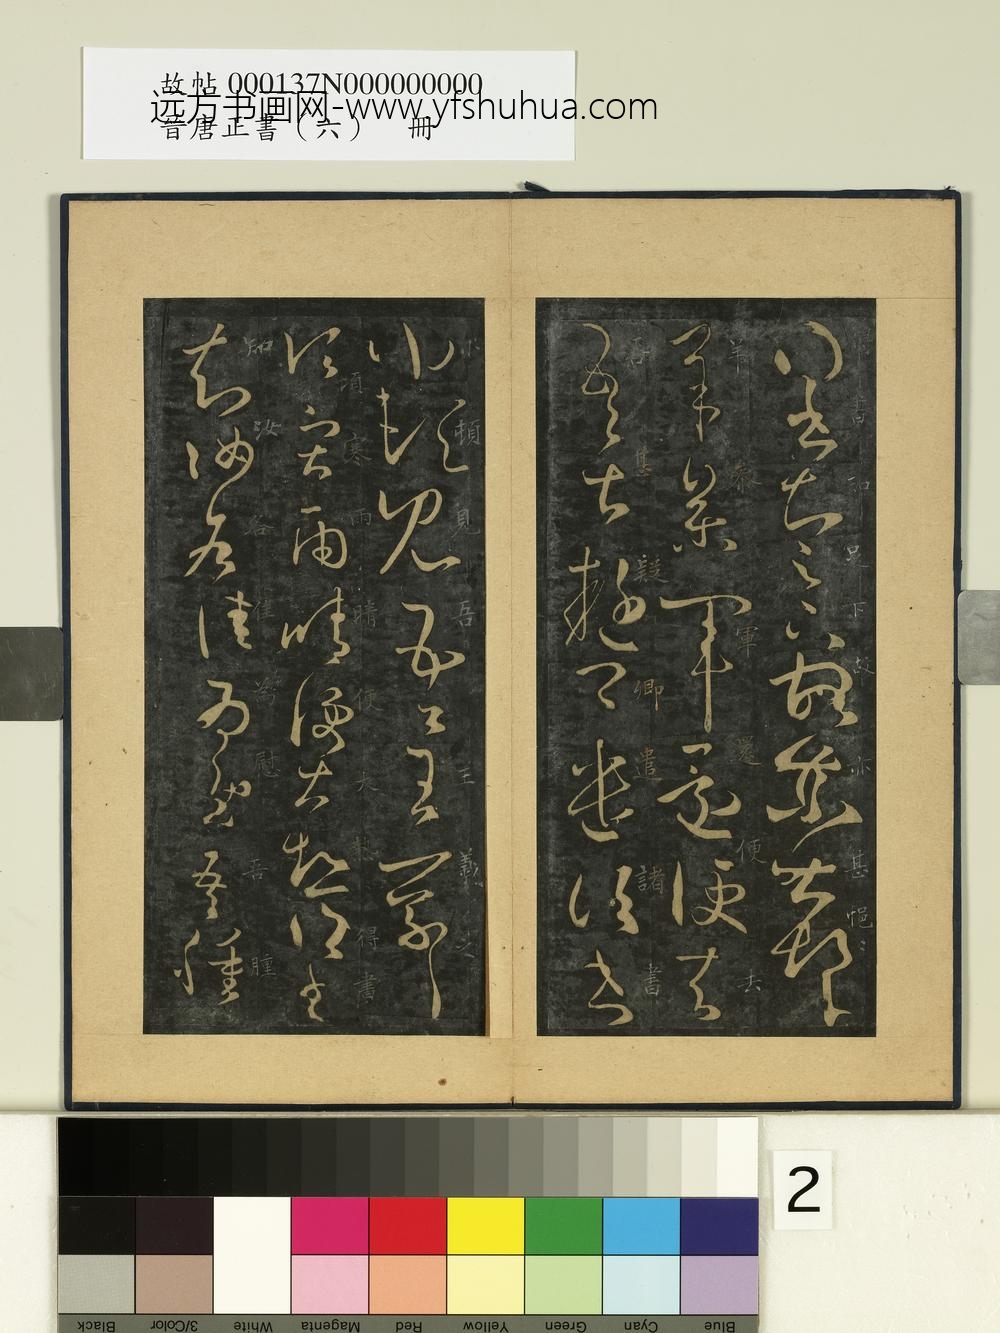 故帖 000137N000000000
远方书画网-www.yfshuhua.com
晉唐正書（六） 冊
書知足下故亦甚悒
羊參軍還便去
吾甚疑卿遣諸書
頓見吾
王羲之
項寒雨晴便大熱得書
知汝各佳為慰吾腫
2
Black
3/Color
White
Magenta
Red
Yellow
Green
Cyan
Blue